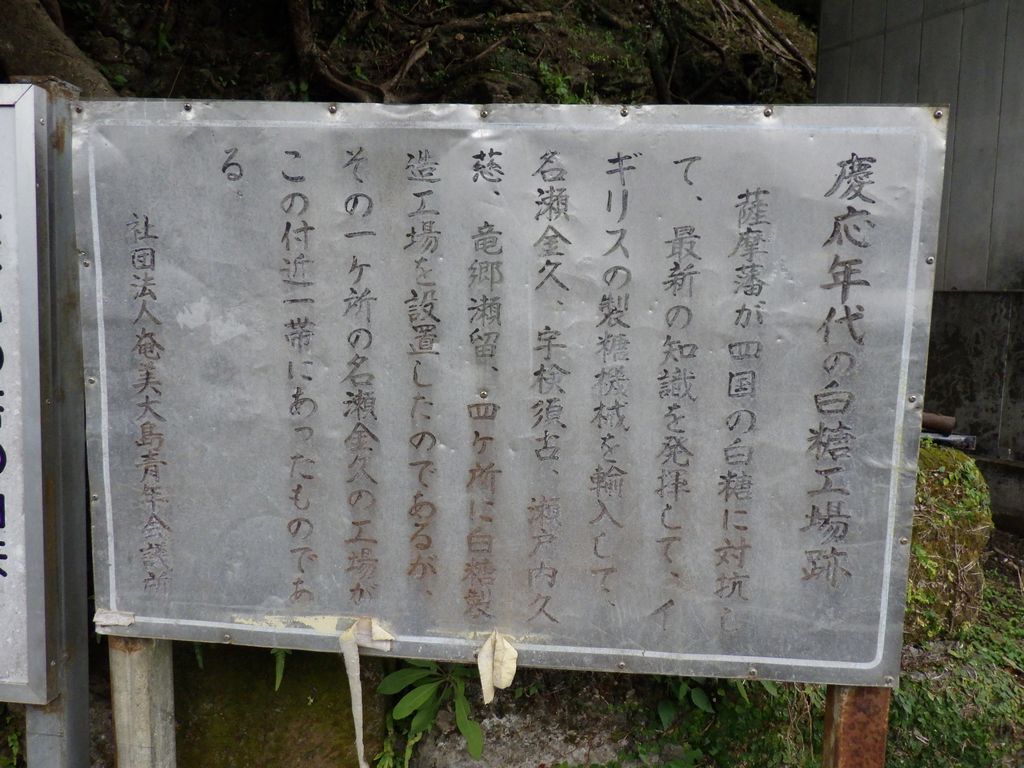 慶応年代の白糖工場跡
薩摩藩が四国の白糖に対抗し
て、最新の知識を発揮して、イ
ギリスの製糖機械を輸入して、
名瀬金久、宇検須古、瀬戸内久
慈、竜郷瀬留、四ケ所に白糖製
造工場を設置したのであるが、
その一ケ所の名瀬金久の工場が
この付近一帯にあったものであ
る。
社団法人奄美大島青年会議所